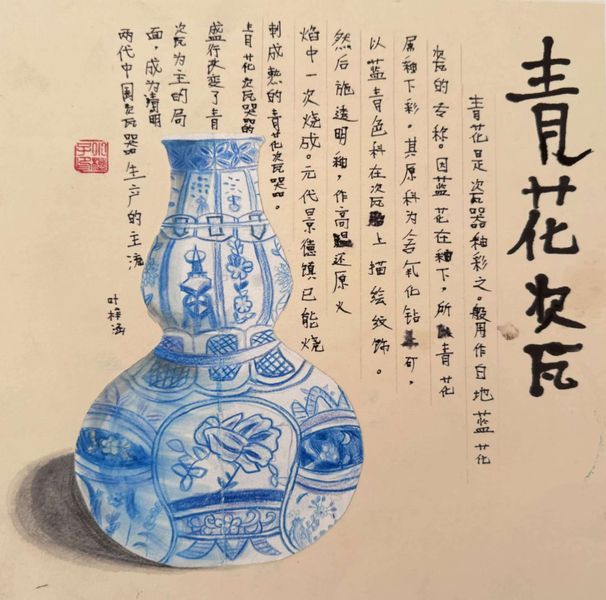 青花瓷
青花是瓷器釉彩之。般用作白地蓝花
瓷的专称。因蓝花在釉下，所青花
属釉下彩。其原料为含氧化钴矿，
以蓝青色料在瓷上描绘纹饰。
然后施透明釉，作高温还原火
焰中一次烧成。元代景德镇已能烧
制成熟的青花瓷器。
青花瓷器的
盛行改变了青
瓷为主的局
面，成为清明
两代中国瓷器生产的主流
叶梓涵